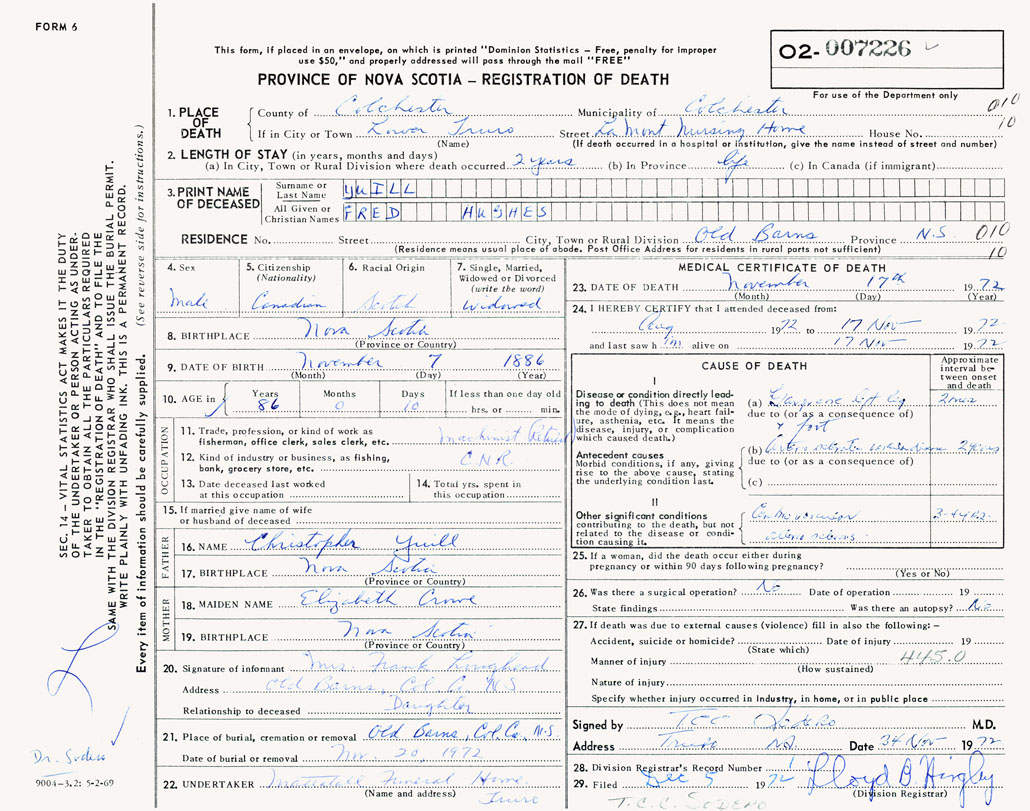 FORM 6
This form, if placed in an envelope, on which is printed "Dominion Statistics – Free, penalty for improper
use $50," and properly addressed will pass through the mail "FREE"
PROVINCE OF NOVA SCOTIA – REGISTRATION OF DEATH
02- 007226
For use of the Department only
010
10
1. PLACE OF DEATH
County of Colchester Municipality of Colchester
If in City or Town Lower Truro Street La Mont Nursing Home House No.
(Name) (If death occurred in a hospital or institution, give the name instead of street and number)
2. LENGTH OF STAY (in years, months and days)
(a) In City, Town or Rural Division where death occurred 2 years (b) In Province life (c) In Canada (if immigrant)
3. PRINT NAME OF DECEASED
Surname or Last Name YUILL
All Given or Christian Names FRED HUGHES
RESIDENCE No. Street City, Town or Rural Division Old Barns Province N.S. 010
(Residence means usual place of abode. Post Office Address for residents in rural parts not sufficient) 10
4. Sex
Male
5. Citizenship (Nationality)
Canadian
6. Racial Origin
Scotch
7. Single, Married, Widowed or Divorced (write the word)
Widowed
8. BIRTHPLACE Nova Scotia
(Province or Country)
9. DATE OF BIRTH November 7 1886
(Month) (Day) (Year)
10. AGE in
Years Months Days If less than one day old
86 0 10 hrs. or min.
OCCUPATION
11. Trade, profession, or kind of work as
fisherman, office clerk, sales clerk, etc. Machinist Retired
12. Kind of industry or business, as fishing,
bank, grocery store, etc. C.N.R.
13. Date deceased last worked
at this occupation
14. Total yrs. spent in
this occupation
15. If married give name of wife
or husband of deceased
FATHER
16. NAME Christopher Yuill
17. BIRTHPLACE Nova Scotia
(Province or Country)
MOTHER
18. MAIDEN NAME Elizabeth Crowe
19. BIRTHPLACE Nova Scotia
(Province or Country)
20. Signature of informant Mrs. Frank
Address Old Barns, Col. Co. N.S.
Relationship to deceased Daughter
21. Place of burial, cremation or removal Old Barns, Col. Co. N.S.
Date of burial or removal Nov. 20, 1972
22. UNDERTAKER Funeral Home
(Name and address) Truro
MEDICAL CERTIFICATE OF DEATH
23. DATE OF DEATH November 17th 1972
(Month) (Day) (Year)
24. I HEREBY CERTIFY that I attended deceased from:
Aug 1972 to 17 Nov 1972
and last saw him alive on 17 Nov 1972
CAUSE OF DEATH
Approximate interval between onset and death
I
Disease or condition directly leading
to death (This does not mean
the mode of dying, e.g., heart failure,
asthenia, etc. It means the
disease, injury, or complication
which caused death.)
(a) Gangrene left leg
due to (or as a consequence of)
& foot
Antecedent causes
Morbid conditions, if any, giving
rise to the above cause, stating
the underlying condition last.
(b) 2 years
due to (or as a consequence of)
(c)
II
Other significant conditions
contributing to the death, but not
related to the disease or condition
causing it.
25. If a woman, did the death occur either during
pregnancy or within 90 days following pregnancy?
(Yes or No)
26. Was there a surgical operation? No Date of operation 19
State findings Was there an autopsy? No
27. If death was due to external causes (violence) fill in also the following: –
Accident, suicide or homicide? Date of injury 19
(State which)
Manner of injury 445.0
(How sustained)
Nature of injury
Specify whether injury occurred in industry, in home, or in public place
Signed by TCC Sodero M.D.
Address Truro NS Date Nov 1972
28. Division Registrar's Record Number
29. Filed Dec 5 1972 Lloyd B Hingley
(Division Registrar)
T.C.C. SODERO
SEC. 14 – VITAL STATISTICS ACT MAKES IT THE DUTY
OF THE UNDERTAKER OR PERSON ACTING AS UNDERTAKER
TO OBTAIN ALL THE PARTICULARS REQUIRED
IN THE "REGISTRATION OF DEATH" AND FILE THE
SAME WITH THE DIVISION REGISTRAR WHO SHALL ISSUE THE BURIAL PERMIT.
WRITE PLAINLY WITH UNFADING INK. THIS IS A PERMANENT RECORD.
Every item of information should be carefully supplied. (See reverse side for instructions.)
Dr. Sodero
9004-3.2: 5-2-69